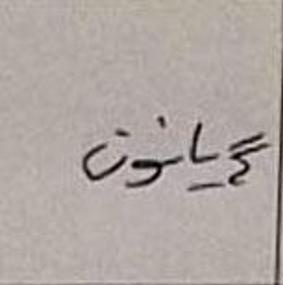 گریانون